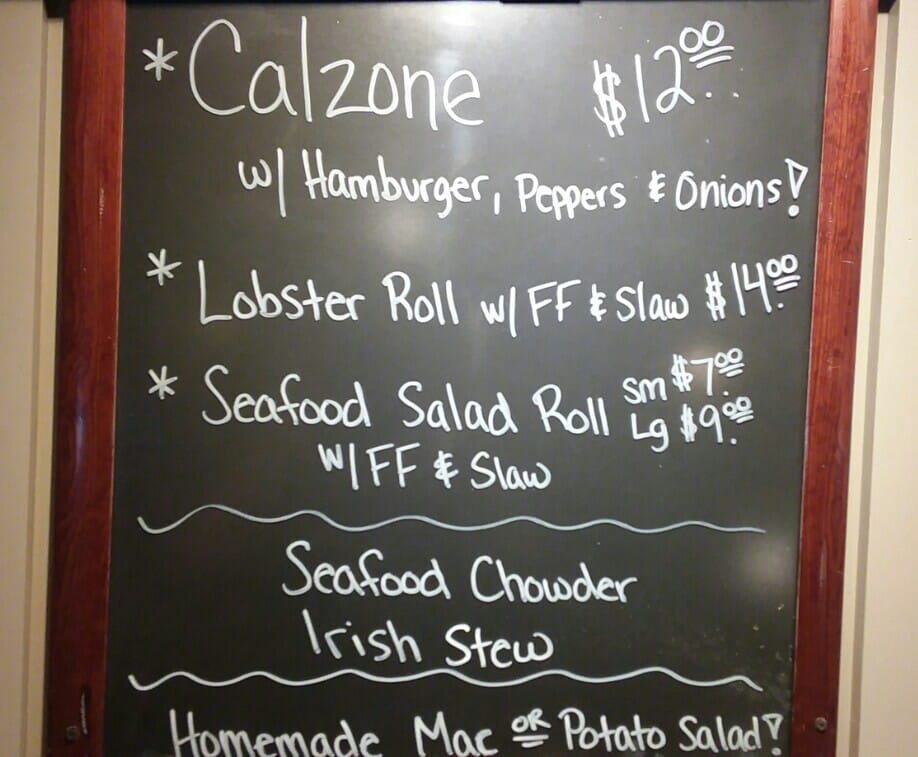 * Calzone $12.00
w/ Hamburger, Peppers & Onions!
* Lobster Roll w/ FF & Slaw $14.00
* Seafood Salad Roll sm $7.00
Lg $9.00
w/ FF & Slaw
Seafood Chowder
Irish Stew
Homemade Mac OR Potato Salad!